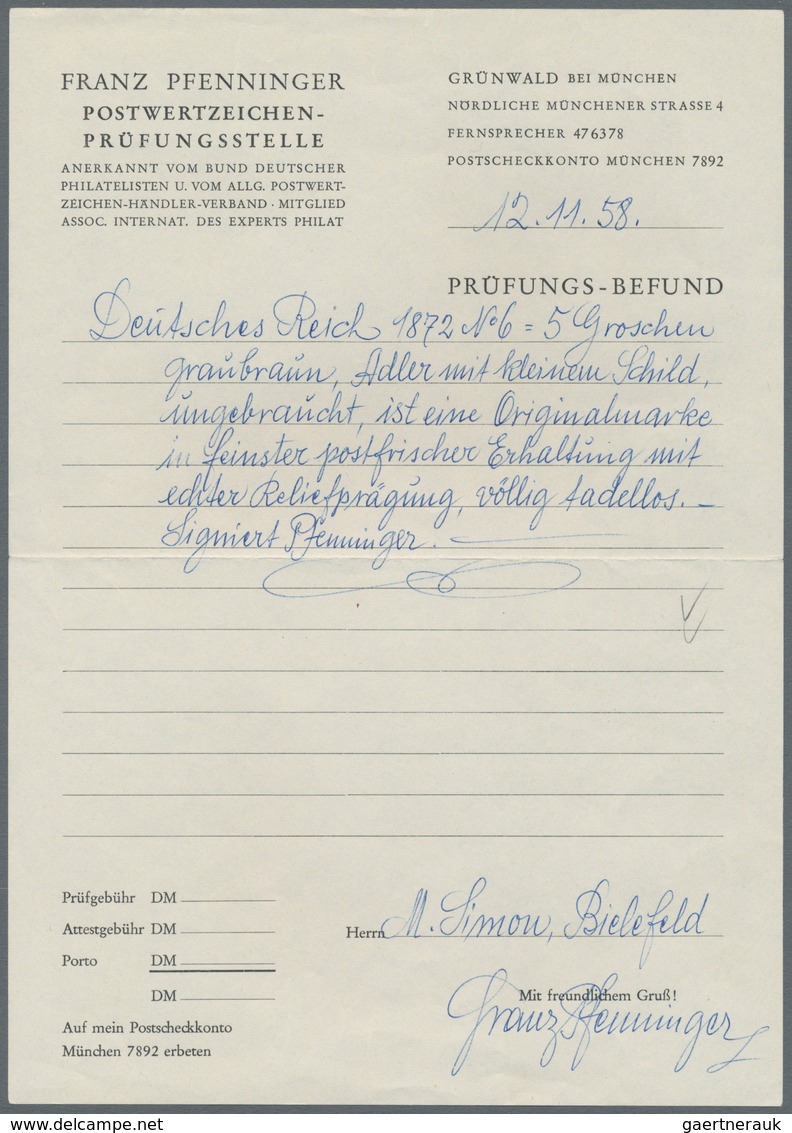 FRANZ PFENNINGER
POSTWERTZEICHEN-
PRÜFUNGSSTELLE
ANERKANNT VOM BUND DEUTSCHER
PHILATELISTEN U. VOM ALLG. POSTWERT-
ZEICHEN-HÄNDLER-VERBAND · MITGLIED
ASSOC. INTERNAT. DES EXPERTS PHILAT
GRÜNWALD BEI MÜNCHEN
NÖRDLICHE MÜNCHENER STRASSE 4
FERNSPRECHER 476378
POSTSCHECKKONTO MÜNCHEN 7892
12.11.58.
PRÜFUNGS-BEFUND
Deutsches Reich 1872 No 6 = 5 Groschen
graubraun, Adler mit kleinem Schild,
ungebraucht, ist eine Originalmarke
in feinster postfrischer Erhaltung mit
echter Reliefprägung, völlig tadellos. –
Signiert Pfenninger. –
Prüfgebühr DM
Attestgebühr DM
Porto DM
DM
Auf mein Postscheckkonto
München 7892 erbeten
Herrn M. Simon, Bielefeld
Mit freundlichem Gruß!
Franz Pfenninger
gaertnerauk